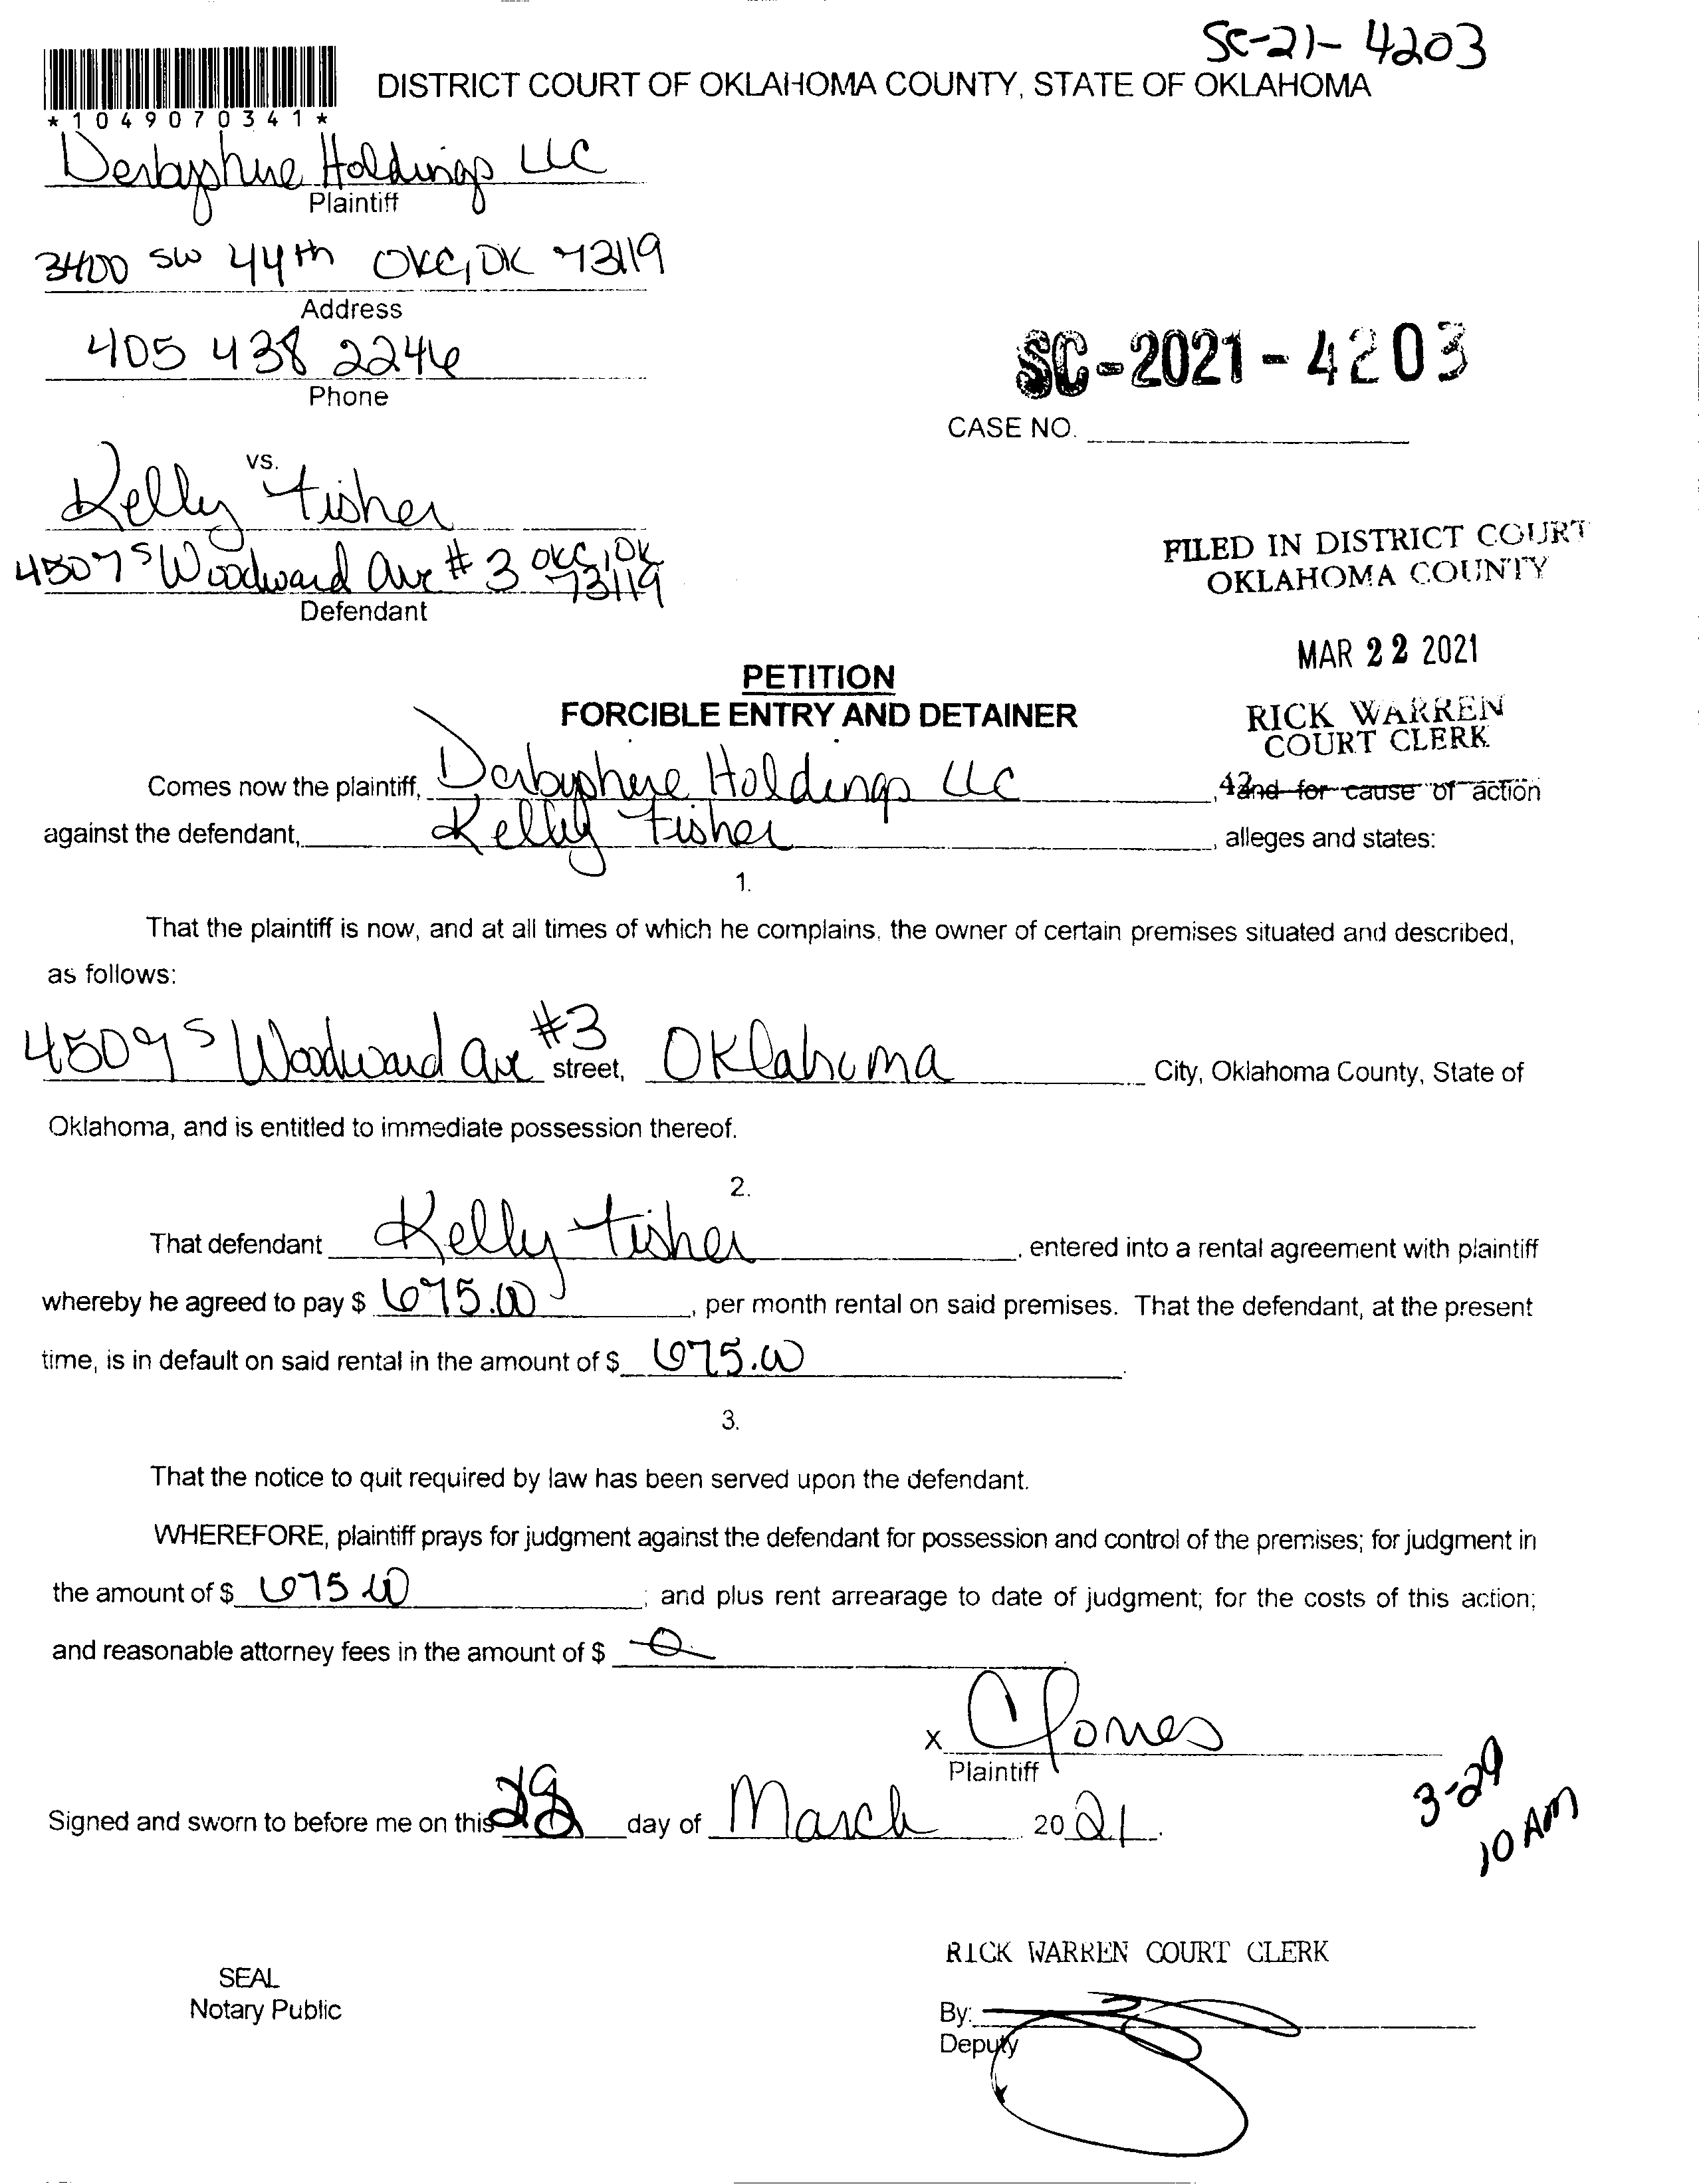 SC-21-4203
DISTRICT COURT OF OKLAHOMA COUNTY, STATE OF OKLAHOMA
*1049070341*
Derbyshire Holdings LLC
Plaintiff
3400 SW 44th OKC, OK 73119
Address
405 438 2246
Phone
SC-2021-4203
CASE NO.
vs.
Kelly Fisher
4507 S Woodward Ave #3 OKC, OK 73119
Defendant
FILED IN DISTRICT COURT
OKLAHOMA COUNTY
MAR 22 2021
RICK WARREN
COURT CLERK
PETITION
FORCIBLE ENTRY AND DETAINER
Comes now the plaintiff, Derbyshire Holdings LLC, 42 and for cause of action
against the defendant, Kelly Fisher, alleges and states:
1.
That the plaintiff is now, and at all times of which he complains, the owner of certain premises situated and described,
as follows:
4507 S Woodward Ave #3 street, Oklahoma City, Oklahoma County, State of
Oklahoma, and is entitled to immediate possession thereof.
2.
That defendant Kelly Fisher, entered into a rental agreement with plaintiff
whereby he agreed to pay $ 675.00, per month rental on said premises. That the defendant, at the present
time, is in default on said rental in the amount of $ 675.00.
3.
That the notice to quit required by law has been served upon the defendant.
WHEREFORE, plaintiff prays for judgment against the defendant for possession and control of the premises; for judgment in
the amount of $ 675.00; and plus rent arrearage to date of judgment; for the costs of this action;
and reasonable attorney fees in the amount of $ 0.
X CJones
Plaintiff
Signed and sworn to before me on this day of March 2021.
3-29
10 AM
RICK WARREN COURT CLERK
SEAL
Notary Public
By:
Deputy